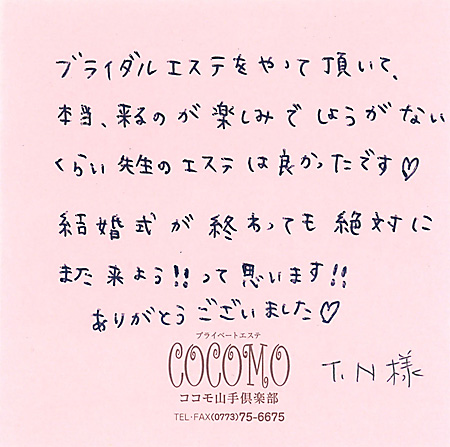 ブライダルエステをやって頂いて、
本当、来るのが楽しみでしょうがない
くらい先生のエステは良かったです♡
結婚式が終わっても絶対に
また来よう!!って思います!!
ありがとうございました♡
プライベートエステ
COCOMO
ココモ山手倶楽部
TEL・FAX(0773)75-6675
T.N様